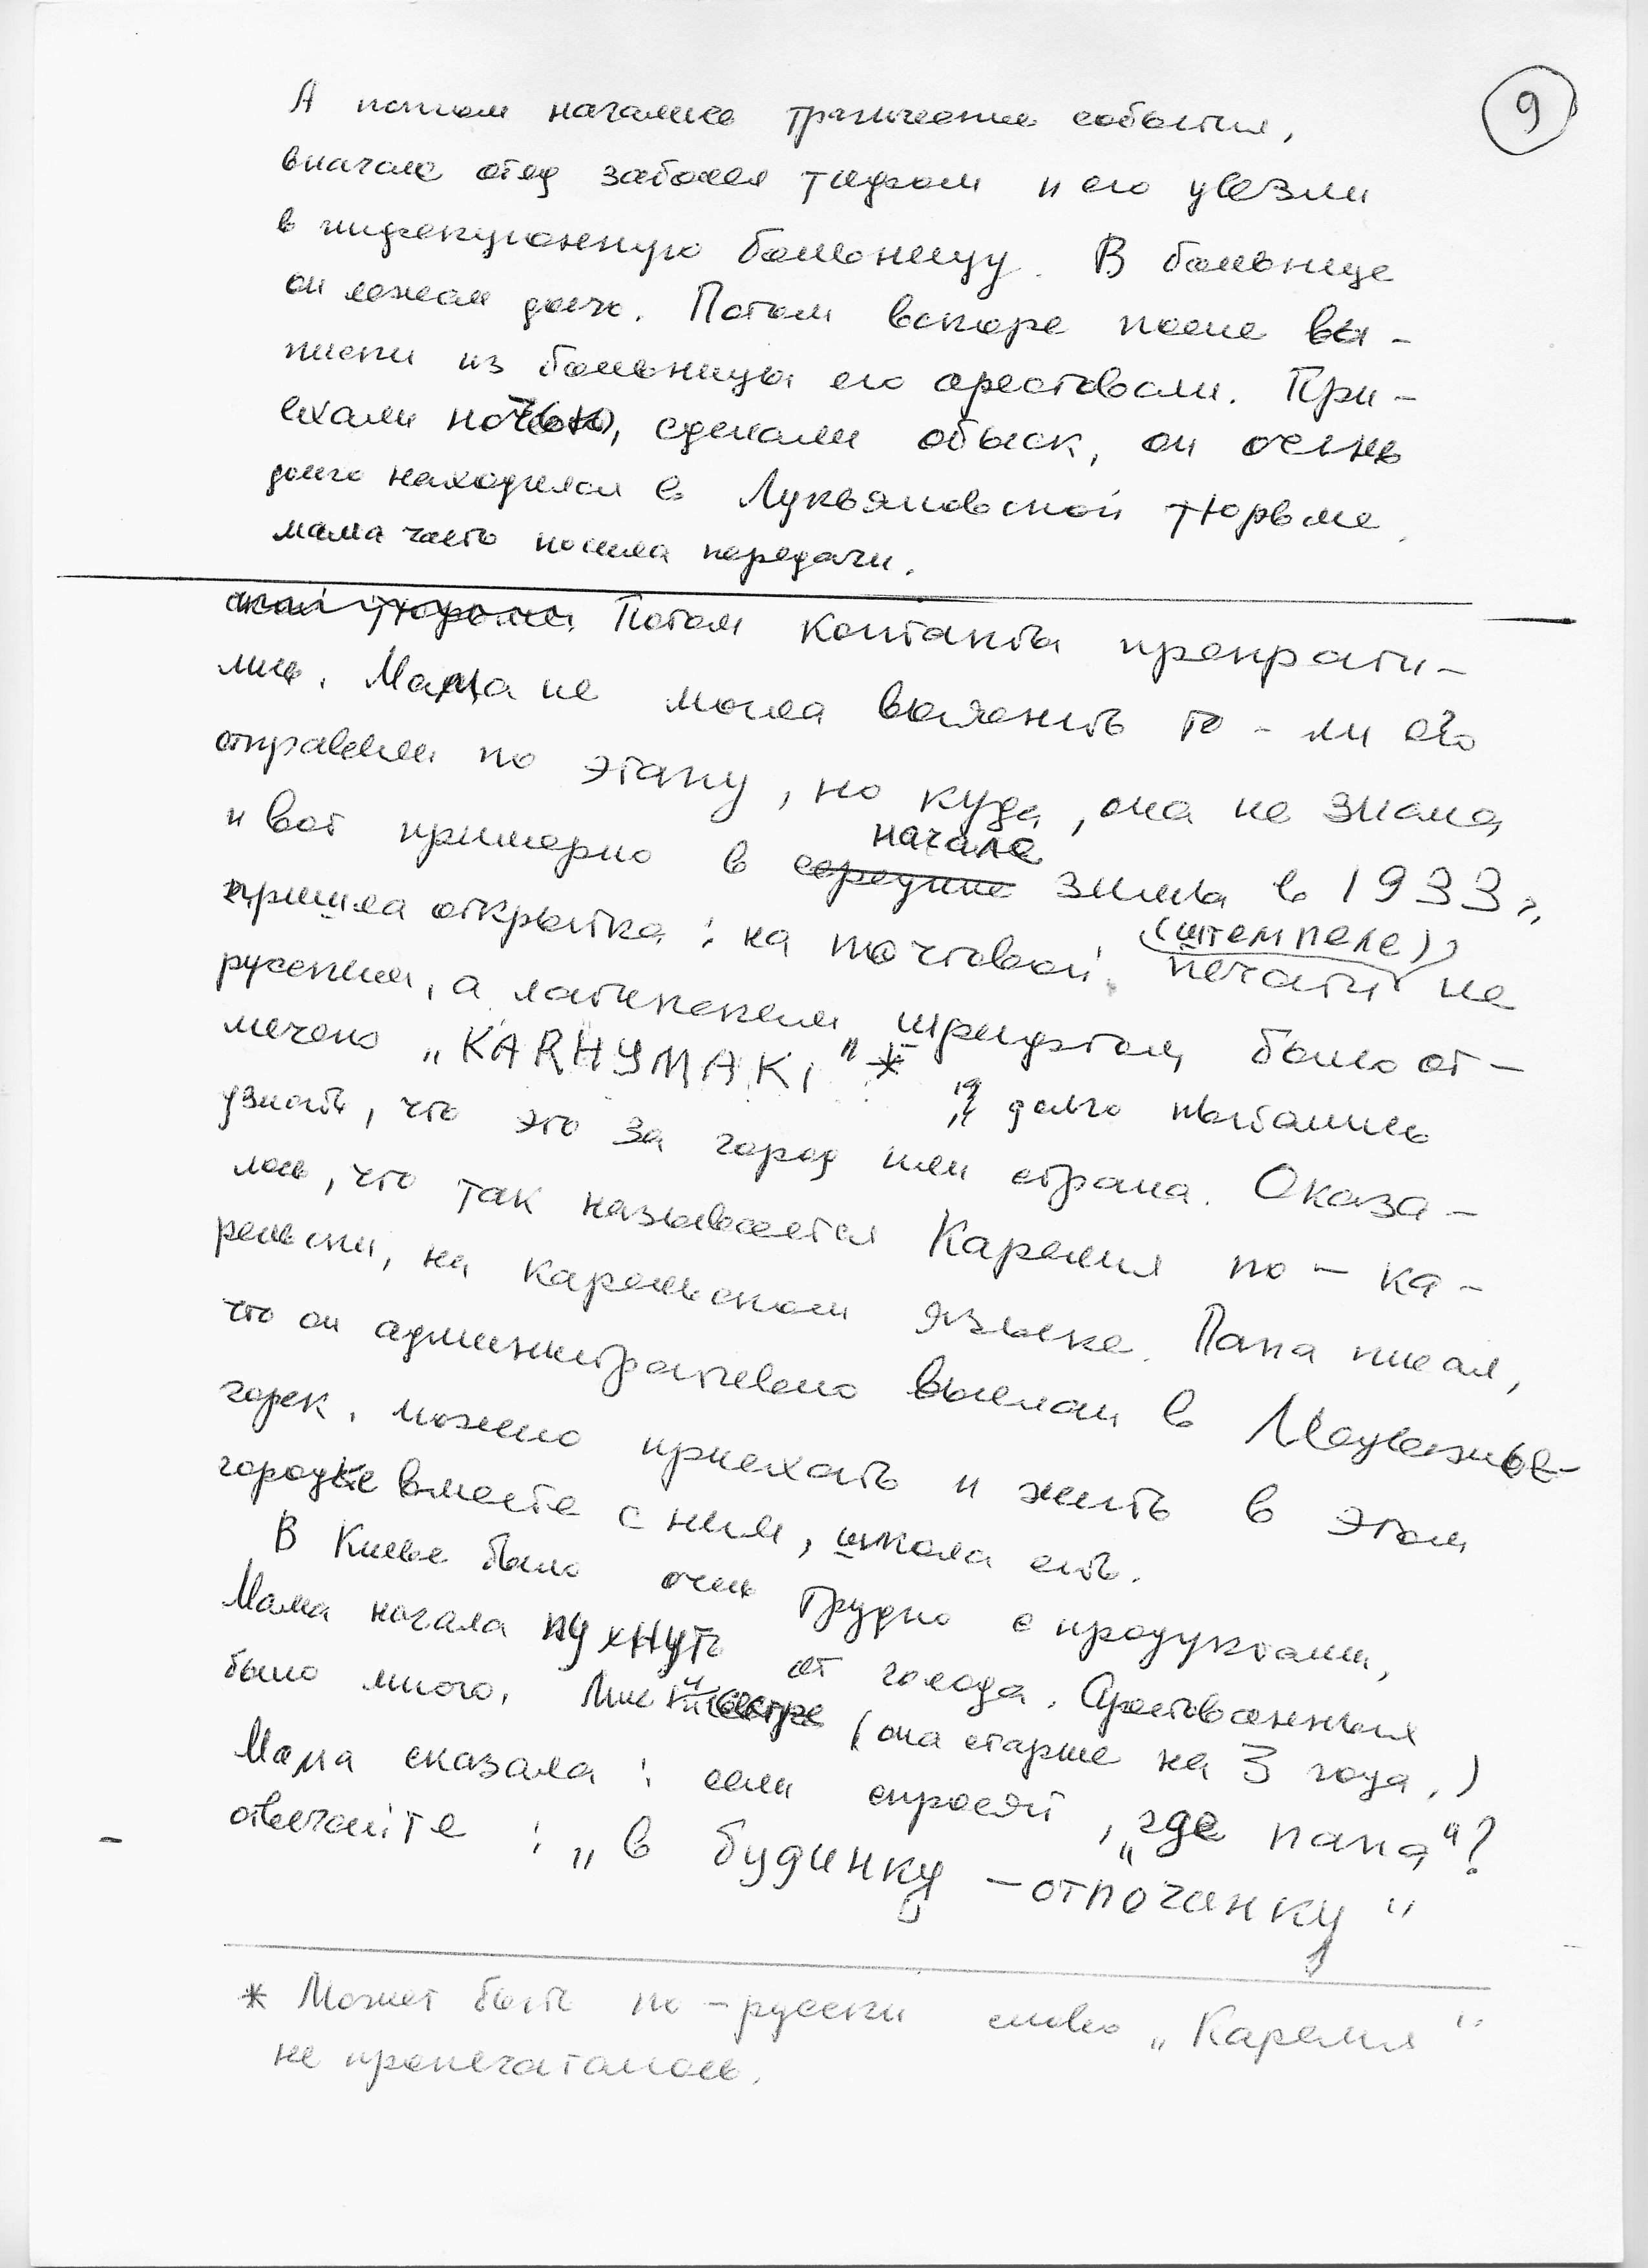 9
А потом начались трагические события,
вначале отец заболел тифом и его увезли
в инфекционную больницу. В больнице
он лежал долго. Потом вскоре после вы-
писки из больницы его арестовали. При-
ехали ночью, сделали обыск, он очень
долго находился в Лукьяновской тюрьме.
мама часто носила передачи.
ской тюрьме. Потом контакты прекрати-
лись. Мама не могла выяснить то-ли его
отправили по этапу, но куда, она не знала,
начале
и вот примерно в середине зимы в 1933 г.
(штемпеле)
пришла открытка: на почтовой печати не
русским, а латинским шрифтом, было от-
мечено „KARHYMAKI"*
долго пытались
узнать, что это за город или страна. Оказа-
лось, что так называется Карелия по-ка-
рельски, на карельском языке. Папа писал,
что он административно выслан в Медвежье-
горск, можно приехать и жить в этом
городке вместе с ним, школа есть.
В Киеве было очень трудно с продуктами,
Мама начала пухнуть от голода. Арестованных
было много. Мне и сестре (она старше на 3 года.)
Мама сказала: если спросят, „где папа"?
отвечайте: „в будинку-отпочинку"
* Может быть по-русски слово „Карелия"
не пропечаталось.